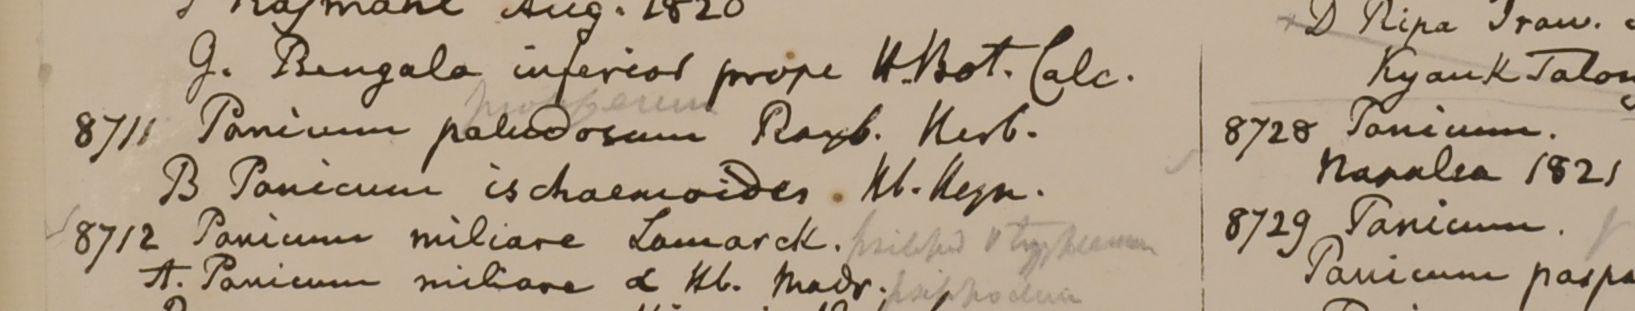 Rajmahl Aug. 1820
G. Bengala inferior prope H. Bot. Calc.
8711 Panicum paludosum Roxb. Herb.
B Panicum ischaemoides. Hb. Heyn.
8712 Panicum miliare Lamarck.
A. Panicum miliare α Hb. Madr.
D Ripa Iraw.
Kyauk Talon
8728 Panicum.
1821
8729 Panicum.
Panicum paspa